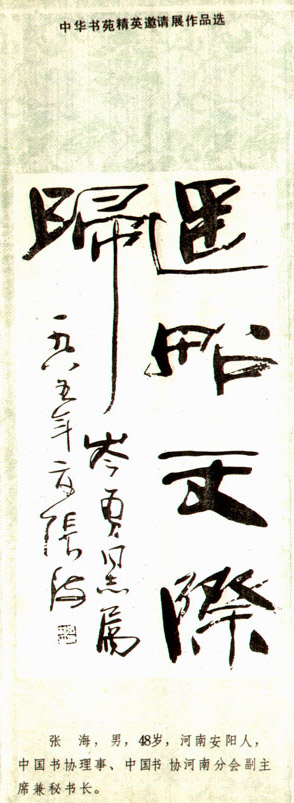 中华书苑精英邀请展作品选
天際
歸
同志属
一九八五年夏張海
张 海，男，48岁，河南安阳人，
中国书协理事、中国书协河南分会副主
席兼秘书长。